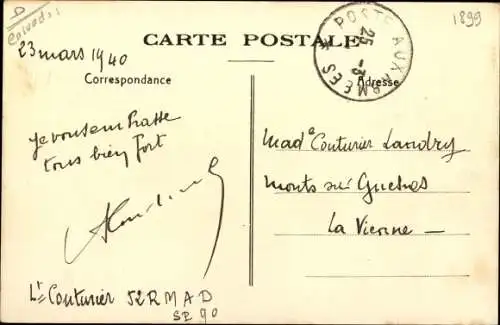 D
Calvados
1899
23 mars 1940
CARTE POSTALE
POSTE AUX ARMEES
25 -3
Correspondance
Adresse
Je vous embrasse
tous bien fort
Made Couturier Landry
Monts sur Guesnes
La Vienne
Lt Couturier 52 R M A D
SP 90